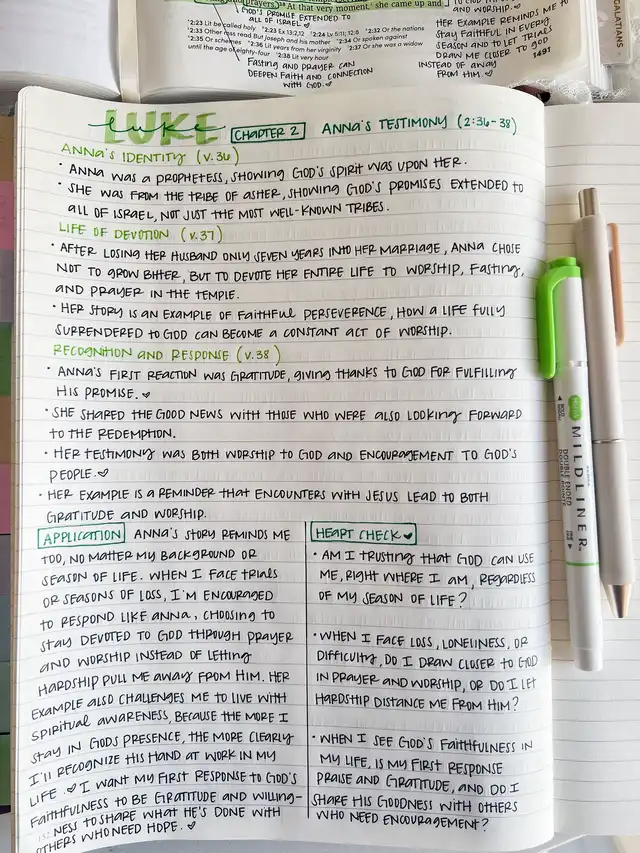 [GOD'S PROMISE EXTENDED TO
ALL OF ISRAEL]
prayers.
At that very moment, she came up and
2:23 Lit be called holy 2:23 Ex 13:2,12 2:24 Lv 5:11; 12:8 2:32 Or the nations
2:33 Other mss read But Joseph and his mother 2:34 Or spoken against
2:35 Or schemes 2:36 Lit years from her virginity 2:37 Or she was a widow
until the age of eighty-four 2:38 Lit very hour
FASTING AND PRAYER CAN
DEEPEN FAITH AND CONNECTION
WITH GOD.
AND WORSHIP.
HER EXAMPLE REMINDS ME TO
STAY FAITHFUL IN EVERY
SEASON AND TO LET TRIALS
DRAW ME CLOSER TO GOD
INSTEAD OF AWAY
FROM HIM.
1491
GALATIANS
LUKE
luke
CHAPTER 2 ANNA'S TESTIMONY (2:36-38)
ANNA'S IDENTITY (v.36)
• ANNA WAS A PROPHETESS, SHOWING GOD'S SPIRIT WAS UPON HER.
• SHE WAS FROM THE TRIBE OF ASHER, SHOWING GOD'S PROMISES EXTENDED TO
ALL OF ISRAEL, NOT JUST THE MOST WELL-KNOWN TRIBES.
LIFE OF DEVOTION (v.37)
• AFTER LOSING HER HUSBAND ONLY SEVEN YEARS INTO HER MARRIAGE, ANNA CHOSE
NOT TO GROW BITTER, BUT TO DEVOTE HER ENTIRE LIFE TO WORSHIP, FASTING,
AND PRAYER IN THE TEMPLE.
• HER STORY IS AN EXAMPLE OF FAITHFUL PERSEVERENCE, HOW A LIFE FULLY
SURRENDERED TO GOD CAN BECOME A CONSTANT ACT OF WORSHIP.
RECOGNITION AND RESPONSE (v.38)
• ANNA'S FIRST REACTION WAS GRATITUDE, GIVING THANKS TO GOD FOR FULFILLING
HIS PROMISE. ♥
• SHE SHARED THE GOOD NEWS WITH THOSE WHO WERE ALSO LOOKING FORWARD
TO THE REDEMPTION.
• HER TESTIMONY WAS BOTH WORSHIP TO GOD AND ENCOURAGEMENT TO GOD'S
PEOPLE. ♥
• HER EXAMPLE IS A REMINDER THAT ENCOUNTERS WITH JESUS LEAD TO BOTH
GRATITUDE AND WORSHIP.
APPLICATION ANNA'S STORY REMINDS ME
TOO, NO MATTER MY BACKGROUND OR
SEASON OF LIFE. WHEN I FACE TRIALS
OR SEASONS OF LOSS, I'M ENCOURAGED
TO RESPOND LIKE ANNA, CHOOSING TO
STAY DEVOTED TO GOD THROUGH PRAYER
AND WORSHIP INSTEAD OF LETTING
HARDSHIP PULL ME AWAY FROM HIM. HER
EXAMPLE ALSO CHALLENGES ME TO LIVE WITH
SPIRITUAL AWARENESS, BECAUSE THE MORE I
STAY IN GODS PRESENCE, THE MORE CLEARLY
I'LL RECOGNIZE HIS HAND AT WORK IN MY
LIFE. ♥ I WANT MY FIRST RESPONSE TO GOD'S
FAITHFULNESS TO BE GRATITUDE AND WILLING-
NESS TO SHARE WHAT HE'S DONE WITH
OTHERS WHO NEED HOPE. ♥
HEART CHECK ♥
• AM I TRUSTING THAT GOD CAN USE
ME, RIGHT WHERE I AM, REGARDLESS
OF MY SEASON OF LIFE?
• WHEN I FACE LOSS, LONELINESS, OR
DIFFICULTY, DO I DRAW CLOSER TO GOD
IN PRAYER AND WORSHIP, OR DO I LET
HARDSHIP DISTANCE ME FROM HIM?
• WHEN I SEE GOD'S FAITHFULNESS IN
MY LIFE, IS MY FIRST RESPONSE
PRAISE AND GRATITUDE, AND DO I
SHARE HIS GOODNESS WITH OTHERS
WHO NEED ENCOURAGEMENT?
MILDLINER
DOUBLE ENDED